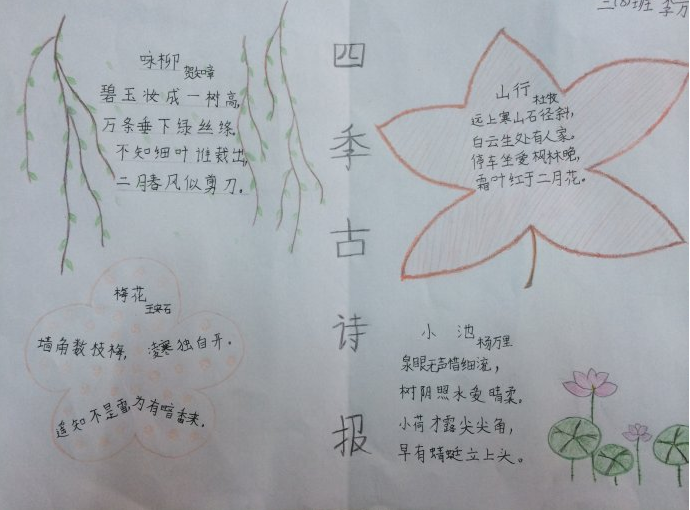 三(8)班 李万
四季古诗报
咏柳
贺知章
碧玉妆成一树高,
万条垂下绿丝绦。
不知细叶谁裁出,
二月春风似剪刀。
山行
杜牧
远上寒山石径斜,
白云生处有人家。
停车坐爱枫林晚,
霜叶红于二月花。
梅花
王安石
墙角数枝梅, 凌寒独自开。
遥知不是雪,为有暗香来。
小池
杨万里
泉眼无声惜细流,
树阴照水爱晴柔。
小荷才露尖尖角,
早有蜻蜓立上头。